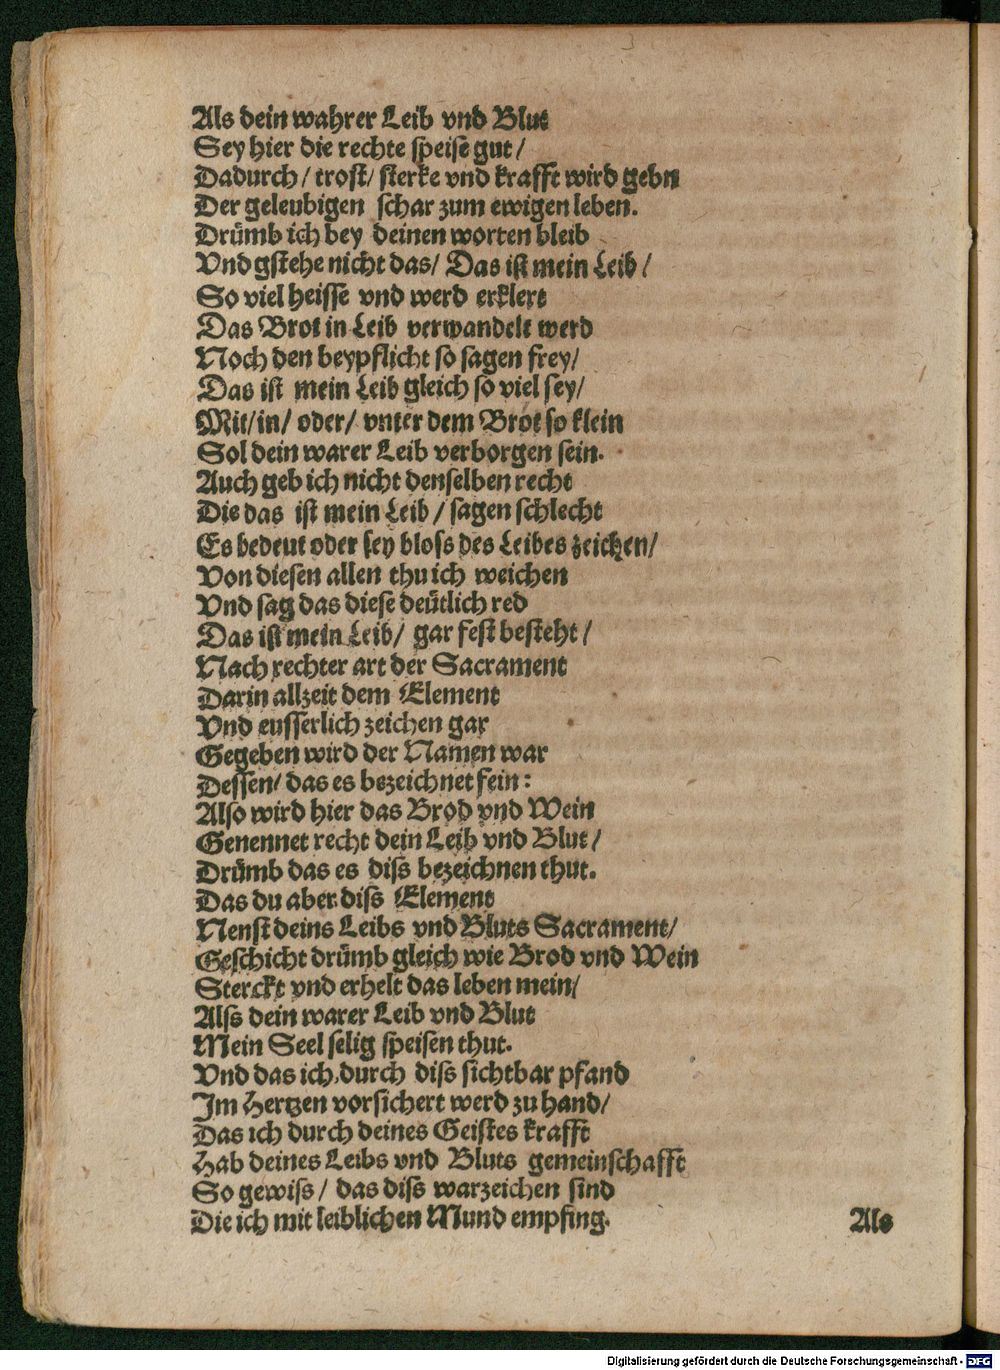 Als dein wahrer Leib vnd Blut
Sey hier die rechte speise gut /
Dadurch / trost / sterke vnd krafft wird gebn
Der geleubigen schar zum ewigen leben.
Drümb ich bey deinen worten bleib
Vnd gstehe nicht das / Das ist mein Leib /
So viel heisse vnd werd erklert
Das Brot in Leib verwandelt werd
Noch den beypflicht so sagen frey /
Das ist mein Leib gleich so viel sey /
Mit / in / oder / vnter dem Brot so klein
Sol dein warer Leib verborgen sein.
Auch geb ich nicht denselben recht
Die das ist mein Leib / sagen schlecht
Es bedeut oder sey bloss des Leibes zeichen /
Von diesen allen thu ich weichen
Vnd sag das diese deütlich red
Das ist mein Leib / gar fest besteht /
Nach rechter art der Sacrament
Darin allzeit dem Element
Vnd eusserlich zeichen gar
Gegeben wird der Namen war
Dessen / das es bezeichnet fein :
Also wird hier das Brod vnd Wein
Genennet recht dein Leib vnd Blut /
Drümb das es diss bezeichnen thut.
Das du aber diss Element
Nenst deins Leibs vnd Bluts Sacrament /
Geschicht drümb gleich wie Brod vnd Wein
Sterckt vnd erhelt das leben mein /
Alss dein warer Leib vnd Blut
Mein Seel selig speisen thut.
Vnd das ich durch diss sichtbar pfand
Im Hertzen vorsichert werd zu hand /
Das ich durch deines Geistes krafft
Hab deines Leibs vnd Bluts gemeinschafft
So gewiss / das diss warzeichen sind
Die ich mit leiblichen Mund empfing.
Als
Digitalisierung gefördert durch die Deutsche Forschungsgemeinschaft - DFG